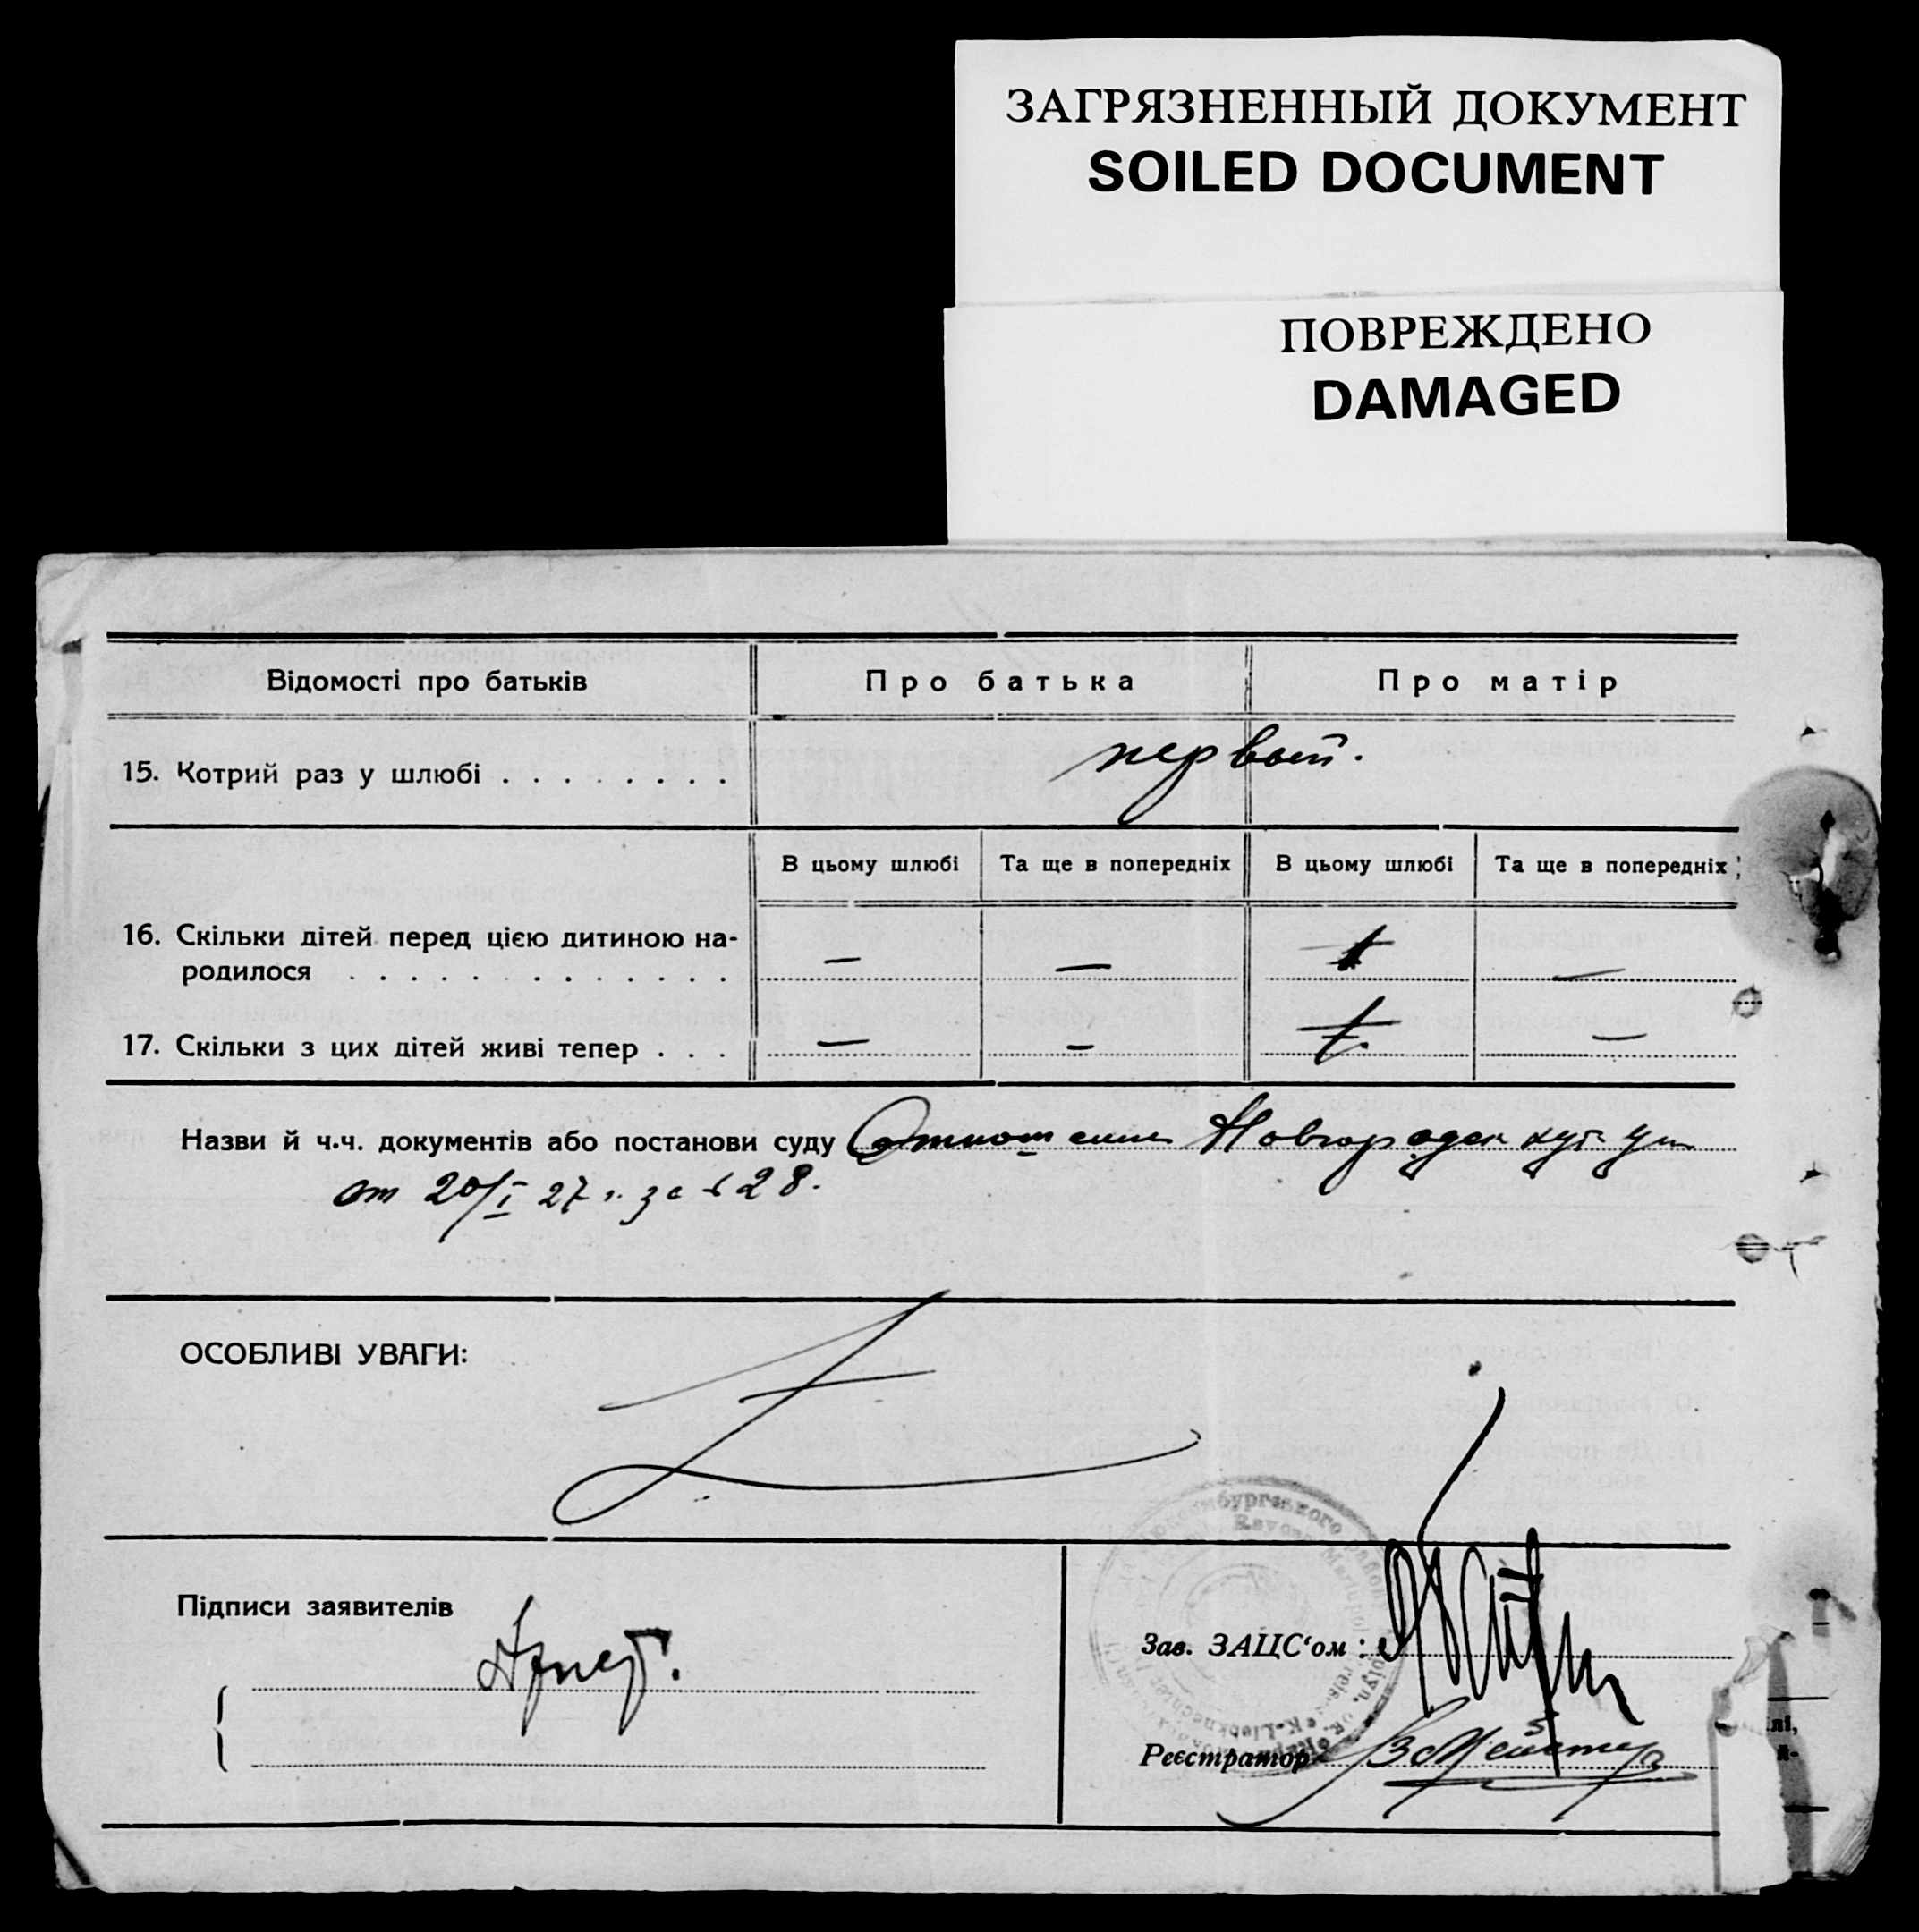 ЗАГРЯЗНЕННЫЙ ДОКУМЕНТ
SOILED DOCUMENT
ПОВРЕЖДЕНО
DAMAGED
Відомості про батьків Про батька Про матір
15. Котрий раз у шлюбі . . . . . . . . первый.
В цьому шлюбі Та ще в попередніх В цьому шлюбі Та ще в попередніх
16. Скільки дітей перед цією дитиною на-
родилося . . . . . . . . . . . . . — — —
17. Скільки з цих дітей живі тепер . . . — — —
Назви й ч.ч. документів або постанови суду Отношение
от 20/I 27 г. за 28.
ОСОБЛИВІ УВАГИ:
Підписи заявителів
Зав. ЗАЦС‘ом :
Реєстратор